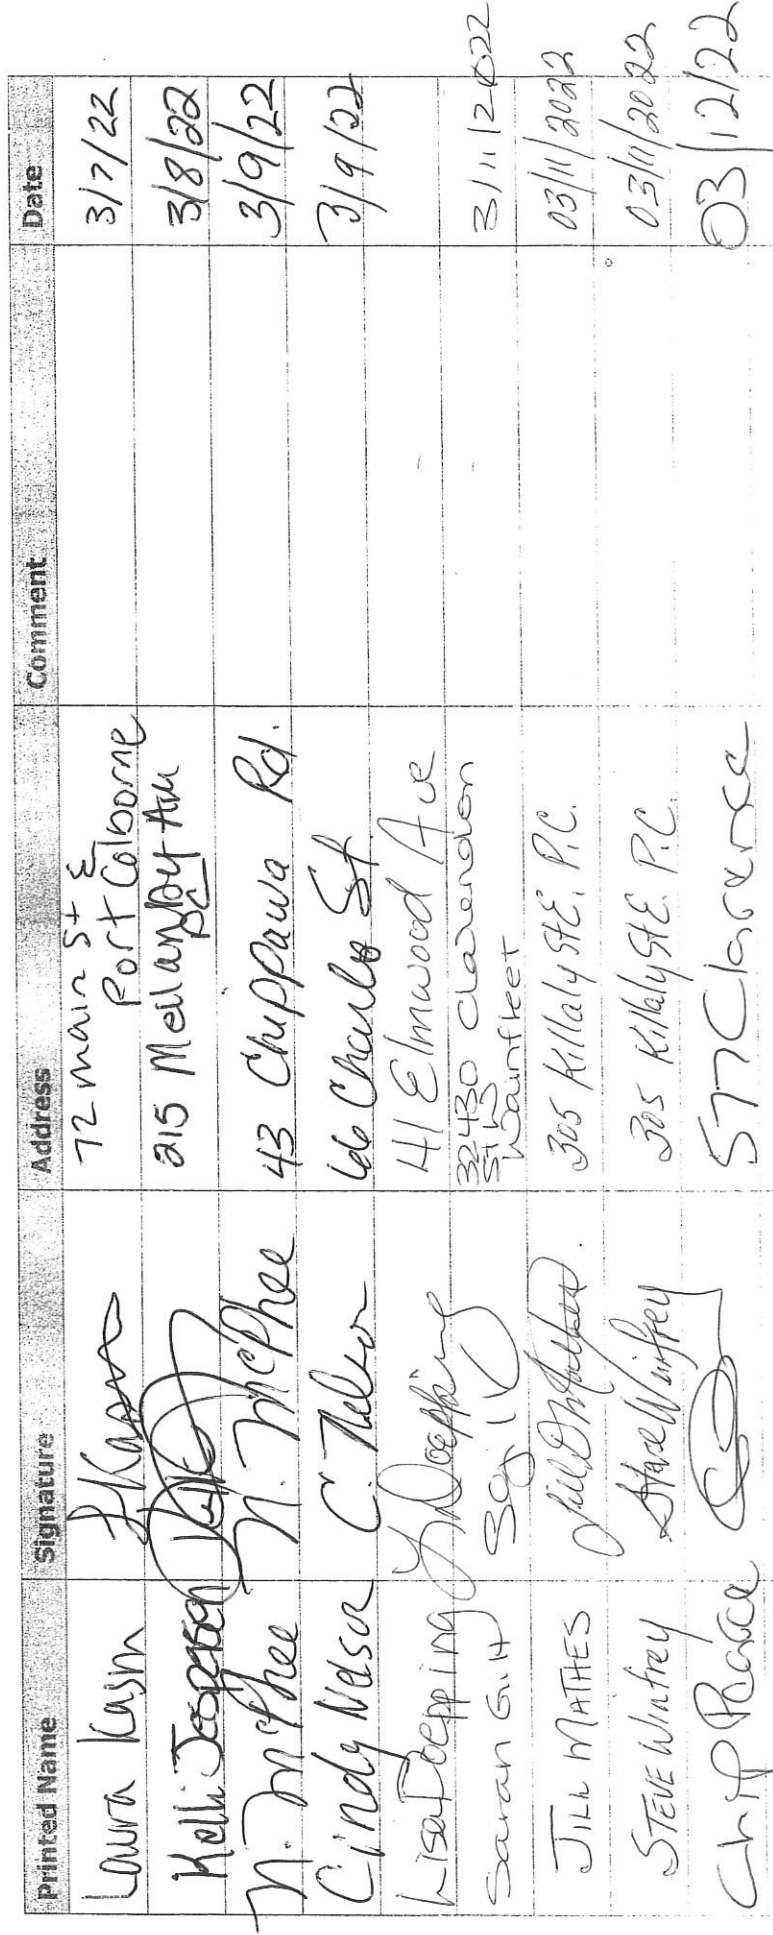 Printed Name Signature Address Comment Date
Laura Kasm LKasm 72 main St E 3/7/22
Port Colborne
Kelli Jespersen 215 Mellanby Ave 3/8/22
PC
N. McPhee N. McPhee 43 Chippawa Rd. 3/9/22
Cindy Nelson C. Nelson 66 Charles St 3/9/22
Lisa Doepping L Doepping 41 Elmwood Ave
Sarah Gill 32430 Clarendon 3/11/2022
St W
Wainfleet
JILL MATHES 305 Killaly St E. P.C. 03/11/2022
STEVE Winfrey Steve Winfrey 305 Killaly St E. P.C. 03/11/2022
Chip Pearce 577 Clarence 03/12/22